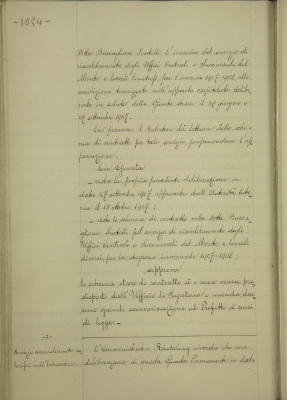 -1094-
Ditta Buscaglione Fratelli l'incarico del servizio di
riscaldamento degli Uffici Centrali e Succursali del
Monte e locali limitrofi, per l'inverno 1907-1908, alle
condizioni
nell'apposito capitolato delibe
rato in seduta della Giunta stessa il 25 giugno e
27 settembre 1907.
Così premesso il Relatore dà lettura dello sche
ma di contratto per tale servizio proponendone l'ap
provazione.
La Giunta
- vista la propria precedente deliberazione in
data 27 settembre 1907 approvata dall'Autorità tuto
ria il 12 ottobre 1907;
- visto lo schema di contratto colla Ditta Busca
glione Fratelli pel servizio di riscaldamento degli
Uffici Centrali e Succursali del Monte e locali
diversi, per la stagione invernale 1907-1908,
approva
lo schema stesso di contratto sì e come venne pre
disposto dall'Ufficio di Segreteria e manda dar
sene quindi comunicazione al Prefetto a sensi
di legge.
L'Amministratore
ricorda che con
deliberazione di questa Giunta Permanente in data